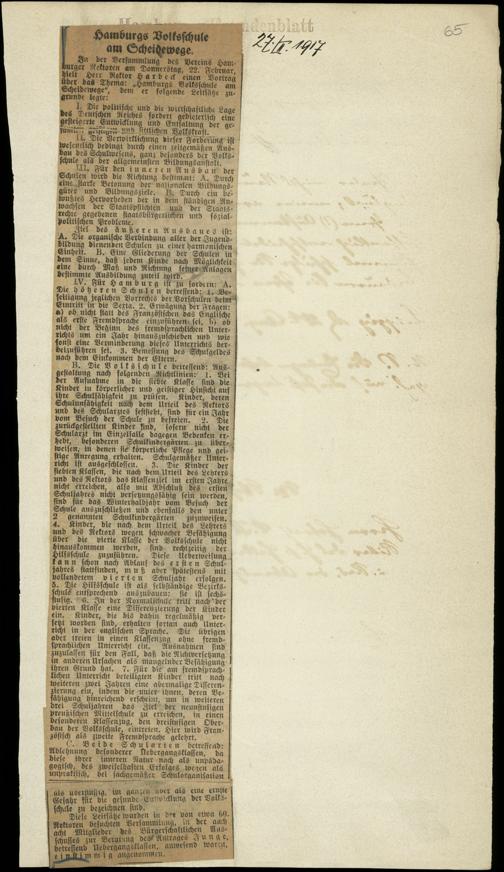 Hamburger Fremdenblatt
27/II. 1917
65
Hamburgs Volksschule
am Scheidewege.
In der Versammlung des Vereins Ham-
burger Rektoren am Donnerstag, 22. Februar,
hielt Herr Rektor Hardeck einen Vortrag
über das Thema: „Hamburgs Volksschule am
Scheidewege“, dem er folgende Leitsätze zu-
grunde legte:
I. Die politische und die wirtschaftliche Lage
des Deutschen Reiches fordert gebieterisch eine
gesteigerte Entwicklung und Entfaltung der ge-
und sittlichen Volkskraft.
II. Die Verwirklichung dieser Forderung ist
wesentlich bedingt durch einen zeitgemäßen Aus-
bau des Schulwesens, ganz besonders der Volks-
schule als der allgemeinsten Bildungsanstalt.
III. Für den inneren Ausbau der
Schulen wird die Richtung bestimmt: A. Durch
eine starke Betonung der nationalen Bildungs-
güter und Bildungsziele. B. Durch ein be-
wußtes Hervorheben der in dem ständigen An-
wachsen der Staatspflichten und der Staats-
rechte gegebenen staatsbürgerlichen und sozial-
politischen Probleme.
Ziel des äußeren Ausbaues ist:
A. Die organische Verbindung aller der Jugend-
bildung dienenden Schulen zu einer harmonischen
Einheit. B. Eine Gliederung der Schulen in
dem Sinne, daß jedem Kinde nach Möglichkeit
eine durch Maß und Richtung seiner Anlagen
bestimmte Ausbildung zuteil wird.
IV. Für Hamburg ist zu fordern: A.
Die höheren Schulen betreffend: 1. Be-
seitigung jeglichen Vorrechtes der Vorschulen beim
Eintritt in die Sexta. 2. Erwägung der Fragen:
a) ob nicht statt des Französischen das Englische
als erste Fremdsprache einzuführen sei, b) ob
nicht der Beginn des fremdsprachlichen Unter-
richts um ein Jahr hinauszuschieben und wie
sonst eine Verminderung dieses Unterrichts her-
beizuführen sei. 3. Bemessung des Schulgeldes
nach dem Einkommen der Eltern.
B. Die Volksschule betreffend: Aus-
gestaltung nach folgenden Richtlinien: 1. Bei
der Aufnahme in die siebte Klasse sind die
Kinder in körperlicher und geistiger Hinsicht auf
ihre Schulfähigkeit zu prüfen. Kinder, deren
Schulunfähigkeit nach dem Urteil des Rektors
und des Schularztes feststeht, sind für ein Jahr
vom Besuch der Schule zu befreien. 2. Die
zurückgestellten Kinder sind, sofern nicht der
Schularzt im Einzelfalle dagegen Bedenken er-
hebt, besonderen Schulkindergärten zu über-
weisen, in denen sie körperliche Pflege und gei-
stige Anregung erhalten. Schulgemäßer Unter-
richt ist ausgeschlossen. 3. Die Kinder der
siebten Klassen, die nach dem Urteil des Lehrers
und des Rektors das Klassenziel im ersten Jahre
nicht erreichen, also mit Abschluß des ersten
Schuljahres nicht versetzungsfähig sein werden,
sind für das Winterhalbjahr vom Besuch der
Schule auszuschließen und ebenfalls den unter
2 genannten Schulkindergärten zuzuweisen.
4. Kinder, die nach dem Urteil des Lehrers
und des Rektors wegen schwacher Befähigung
über die vierte Klasse der Volksschule nicht
hinauskommen werden, sind rechtzeitig der
Hilfsschule zuzuführen. Diese Ueberweisung
kann schon nach Ablauf des ersten Schul-
jahres stattfinden, muß aber spätestens mit
vollendetem vierten Schuljahr erfolgen.
5. Die Hilfsschule ist als selbständige Bezirks-
schule entsprechend auszubauen: sie ist sechs-
stufig. 6. In der Normalschule tritt nach der
vierten Klasse eine Differenzierung der Kinder
ein. Kinder, die bis dahin regelmäßig ver-
setzt worden sind, erhalten fortan auch Unter-
richt in der englischen Sprache. Die übrigen
aber treten in einen Klassenzug ohne fremd-
sprachlichen Unterricht ein. Ausnahmen sind
zuzulassen für den Fall, daß die Nichtversetzung
in anderen Ursachen als mangelnder Befähigung
ihren Grund hat. 7. Für die am fremdsprach-
lichen Unterricht beteiligten Kinder tritt nach
weiteren zwei Jahren eine abermalige Differen-
zierung ein, indem die unter ihnen, deren Be-
fähigung hinreichend erscheint, um in weiteren
drei Schuljahren das Ziel der neunstufigen
preußischen Mittelschule zu erreichen, in einen
besonderen Klassenzug, den dreistufigen Ober-
bau der Volksschule, eintreten. Hier wird Fran-
zösisch als zweite Fremdsprache gelehrt.
C. Beide Schularten betreffend:
Ablehnung besonderer Uebergangsklassen, da
diese ihrer inneren Natur nach als unpäda-
gogisch, des zweifelhaften Erfolges wegen als
unpraktisch, bei sachgemäßer Schulorganisation
als überflüssig, im ganzen aber als eine ernste
Gefahr für die gesunde Entwicklung der Volks-
schule zu bezeichnen sind.
Diese Leitsätze wurden in der von etwa 60
Rektoren besuchten Versammlung, in der auch
acht Mitglieder des Bürgerschaftlichen Aus-
schusses zur Beratung des Antrages Junge,
betreffend Uebergangsklassen, anwesend waren,
einstimmig angenommen.